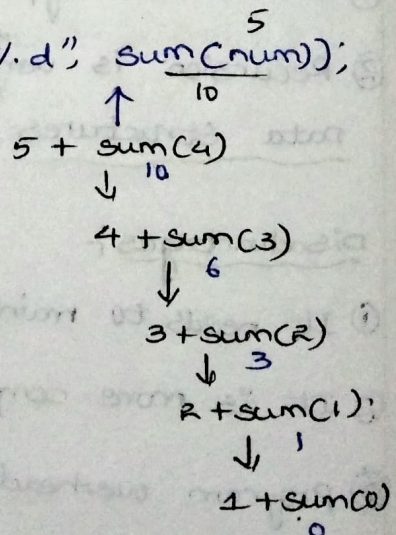 5
%.d", sum(num));
10
5 + sum(4)
10
4 + sum(3)
6
3 + sum(2)
3
2 + sum(1);
1
1 + sum(0)
0